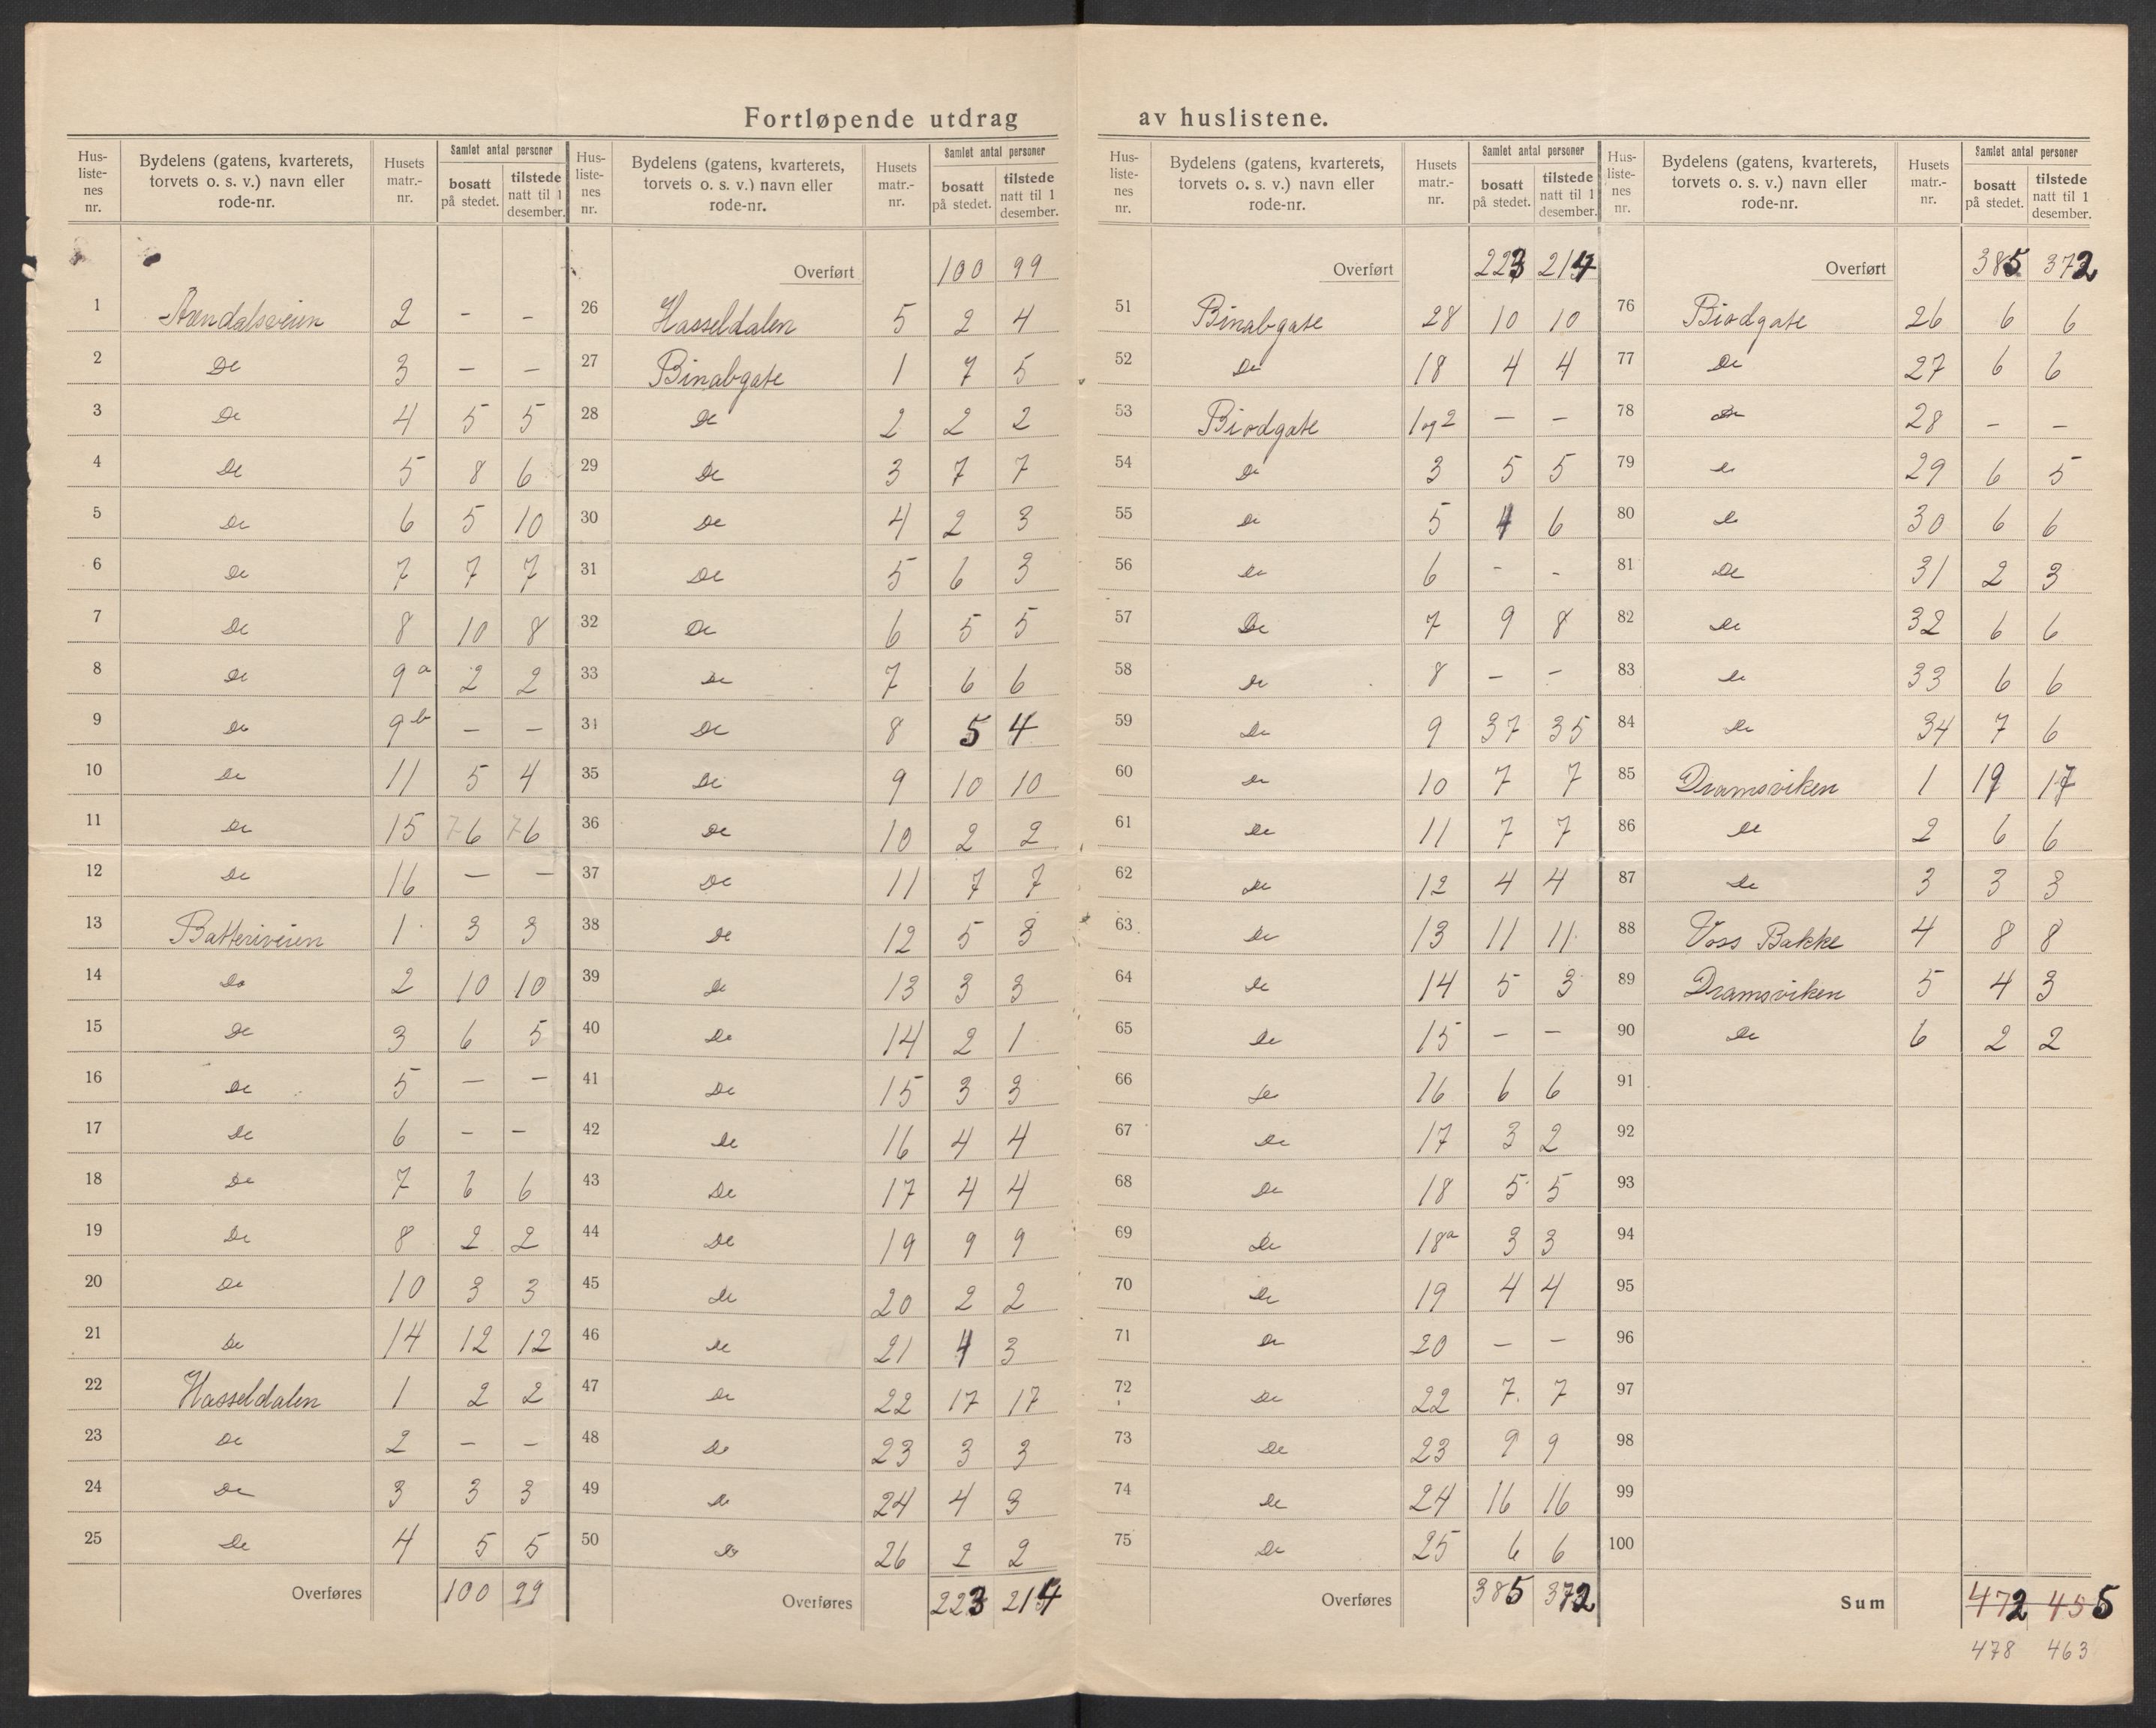 Fortløpende utdrag av huslistene.
Hus-listenes nr. | Bydelens (gatens, kvarterets, torvets o. s. v.) navn eller rode-nr. | Husets matr.-nr. | Samlet antal personer: bosatt på stedet. | tilstede natt til 1 desember.
1 Arendalsveien 2 - -
2 Do 3 - -
3 Do 4 5 5
4 Do 5 8 6
5 Do 6 5 10
6 Do 7 7 7
7 Do 8 10 8
8 Do 9a 2 2
9 Do 9b - -
10 Do 11 5 4
11 Do 15 76 76
12 Do 16 - -
13 Batteriveien 1 3 3
14 Do 2 10 10
15 Do 3 6 5
16 Do 5 - -
17 Do 6 - -
18 Do 7 6 6
19 Do 8 2 2
20 Do 10 3 3
21 Do 14 12 12
22 Hasseldalen 1 2 2
23 Do 2 - -
24 Do 3 3 3
25 Do 4 5 5
Overføres 100 99
Hus-listenes nr. | Bydelens (gatens, kvarterets, torvets o. s. v.) navn eller rode-nr. | Husets matr.-nr. | Samlet antal personer: bosatt på stedet. | tilstede natt til 1 desember.
Overført 100 99
26 Hasseldalen 5 2 4
27 Binabgate 1 7 5
28 Do 2 2 2
29 Do 3 7 7
30 Do 4 2 3
31 Do 5 6 3
32 Do 6 5 5
33 Do 7 6 6
34 Do 8 5 4
35 Do 9 10 10
36 Do 10 2 2
37 Do 11 7 7
38 Do 12 5 3
39 Do 13 3 3
40 Do 14 2 1
41 Do 15 3 3
42 Do 16 4 4
43 Do 17 4 4
44 Do 19 9 9
45 Do 20 2 2
46 Do 21 4 3
47 Do 22 17 17
48 Do 23 3 3
49 Do 24 4 3
50 Do 26 2 2
Overføres 223 214
Hus-listenes nr. | Bydelens (gatens, kvarterets, torvets o. s. v.) navn eller rode-nr. | Husets matr.-nr. | Samlet antal personer: bosatt på stedet. | tilstede natt til 1 desember.
Overført 223 214
51 Binabgate 28 10 10
52 Do 18 4 4
53 Biodgate 1 og 2 - -
54 Do 3 5 5
55 Do 5 4 6
56 Do 6 - -
57 Do 7 9 8
58 Do 8 - -
59 Do 9 37 35
60 Do 10 7 7
61 Do 11 7 7
62 Do 12 4 4
63 Do 13 11 11
64 Do 14 5 3
65 Do 15 - -
66 Do 16 6 6
67 Do 17 3 2
68 Do 18 5 5
69 Do 18a 3 3
70 Do 19 4 4
71 Do 20 - -
72 Do 22 7 7
73 Do 23 9 9
74 Do 24 16 16
75 Do 25 6 6
Overføres 385 372
Hus-listenes nr. | Bydelens (gatens, kvarterets, torvets o. s. v.) navn eller rode-nr. | Husets matr.-nr. | Samlet antal personer: bosatt på stedet. | tilstede natt til 1 desember.
Overført 385 372
76 Biodgate 26 6 6
77 Do 27 6 6
78 Do 28 - -
79 Do 29 6 5
80 Do 30 6 6
81 Do 31 2 3
82 Do 32 6 6
83 Do 33 6 6
84 Do 34 7 6
85 Dramsviken 1 19 17
86 Do 2 6 6
87 Do 3 3 3
88 Voss Bakke 4 8 8
89 Dramsviken 5 4 3
90 Do 6 2 2
91
92
93
94
95
96
97
98
99
100
Sum 472 455
478 463